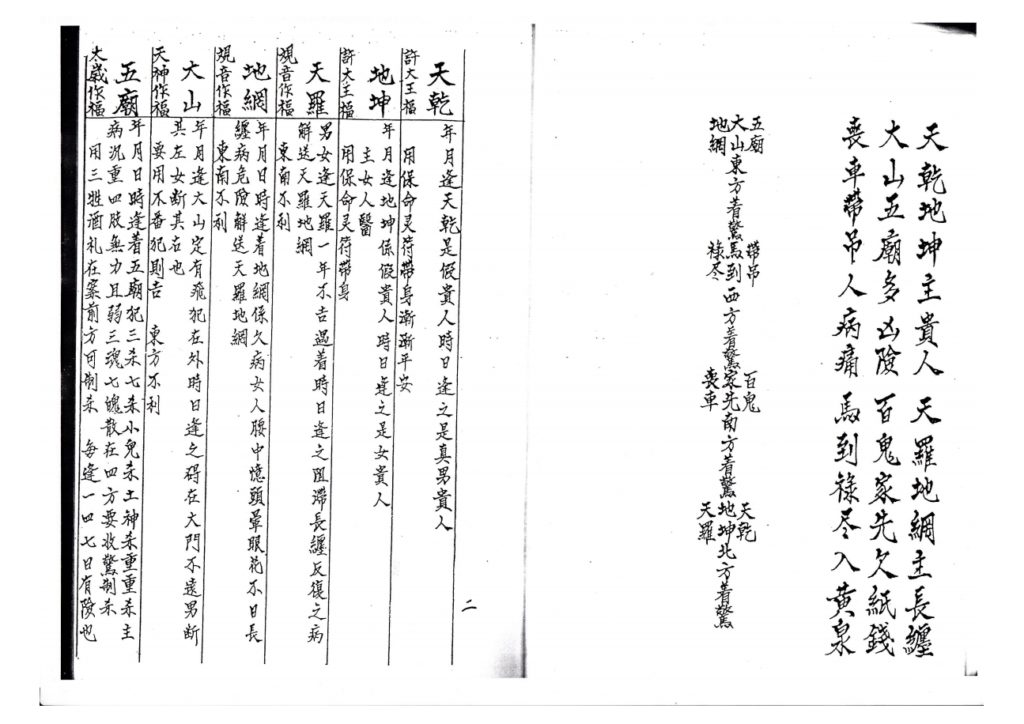 天乾地坤主貴人　天羅地網主長纏
大山五廟多凶險　百鬼家先欠紙錢
喪車帶吊人病痛　馬到祿尽入黃泉
五廟
大山東方着驚
地網
帶吊
馬到西方着驚
祿尽
百鬼
家先南方着驚
喪車
天乾
地坤北方着驚
天羅
二
天乾
許大王福
年月逢天乾是假貴人時日逢之是真男貴人
用保命灵符帶身漸漸平安
地坤
許大主福
年月逢地坤係假貴人時日逢之是女貴人
主女人醫
用保命灵符帶身
天羅
覌音作福
男女逢天羅一年不吉過着時日逢之阻滯長纏反復之病
解送天羅地網
東南不利
地網
覌音作福
年月日時逢着地網係久病女人腰中憶頭暈眼花不日長
纏病危險解送天羅地網
東南不利
大山
天神作福
年月逢大山定有飛犯在外時日逢之碍在大門不遠男断
其左女断其右也
要用不番犯則吉　東方不利
五廟
太歲作福
年月日時逢着五廟犯三杀七杀小兒杀土神杀重重杀主
病沉重四肢無力且弱三魂七魄散在四方要收驚制杀
用三牲酒礼在案前方可制杀　每逢一四七日有險也